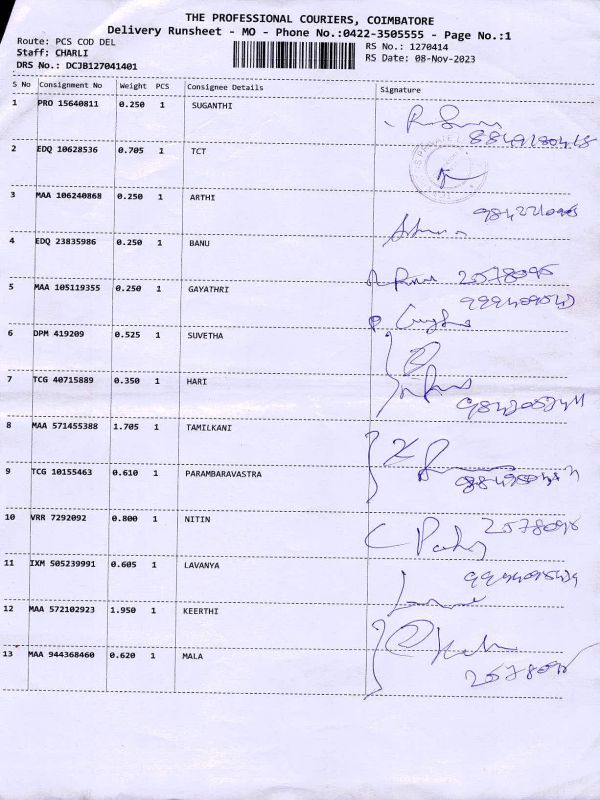 THE PROFESSIONAL COURIERS, COIMBATORE
Delivery Runsheet - MO - Phone No.:0422-3505555 - Page No.:1
Route: PCS COD DEL
Staff: CHARLI
DRS No.: DCJB127041401
RS No.: 1270414
RS Date: 08-Nov-2023
S No Consignment No Weight PCS Consignee Details Signature
1 PRO 15640811 0.250 1 SUGANTHI
2 EDQ 10628536 0.705 1 TCT
3 MAA 106240868 0.250 1 ARTHI
4 EDQ 23835986 0.250 1 BANU
2578096
5 MAA 105119355 0.250 1 GAYATHRI
6 DPM 419209 0.525 1 SUVETHA
7 TCG 40715889 0.350 1 HARI
8 MAA 571455388 1.705 1 TAMILKANI
9 TCG 10155463 0.610 1 PARAMBARAVASTRA
10 VRR 7292092 0.800 1 NITIN
2578096
11 IXM 505239991 0.605 1 LAVANYA
12 MAA 572102923 1.950 1 KEERTHI
13 MAA 944368460 0.620 1 MALA